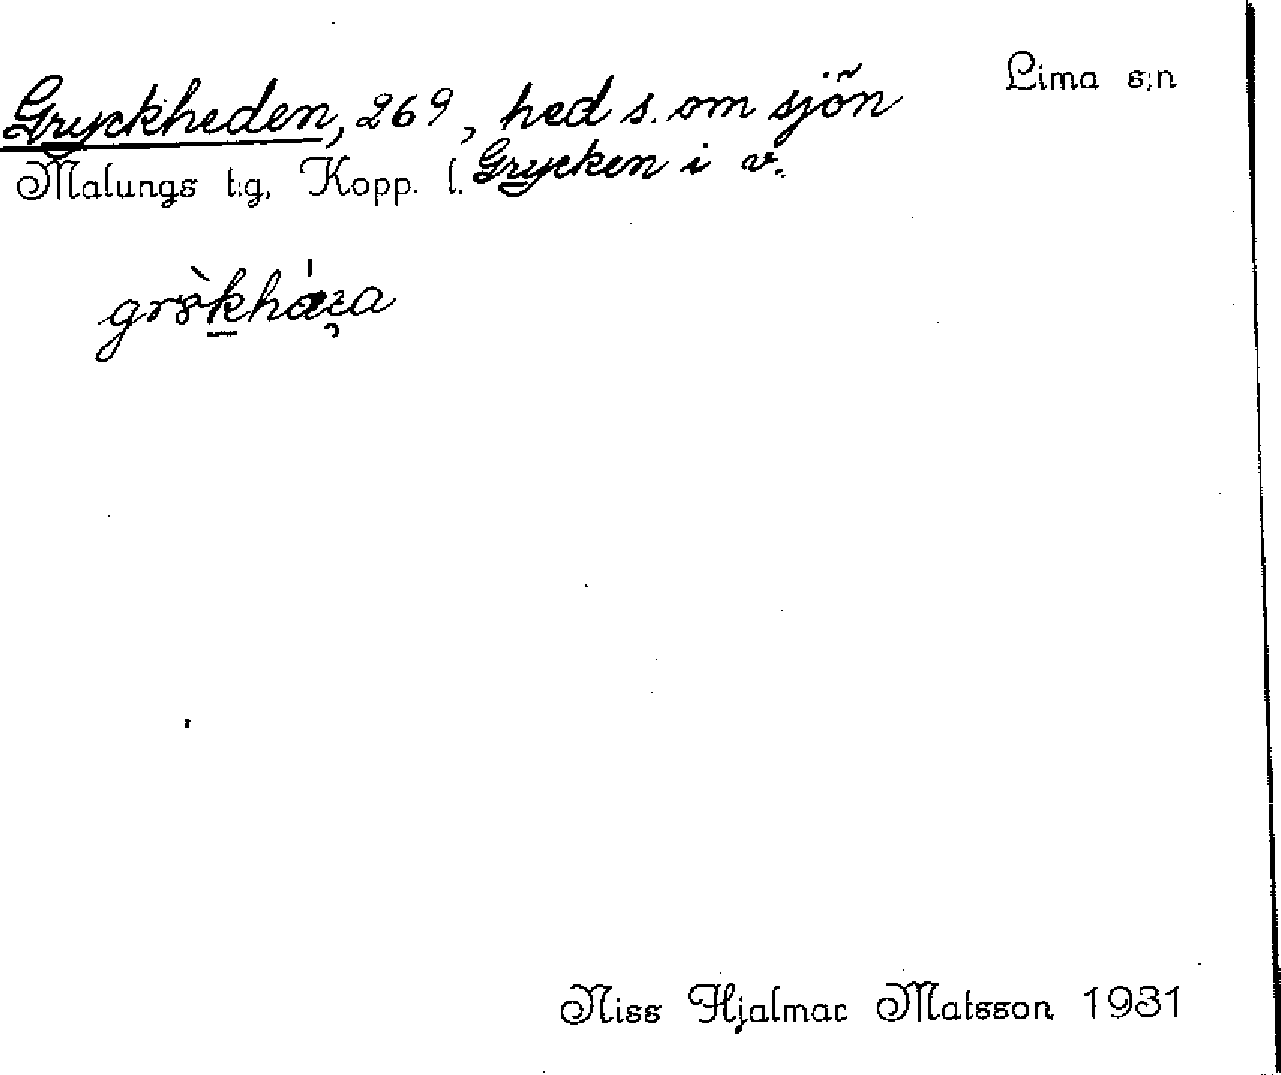 Gryckheden, 269, hed s. om sjön
Lima s:n
Malungs t:g, Kopp. l. Grycken i v.
Niss Hjalmar Matsson 1931